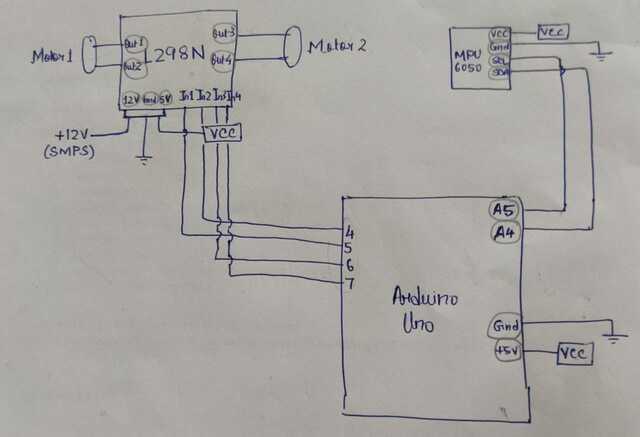 Motor 1
Out1
Out2
L298N
Out3
Out4
Motor 2
12V Gnd 5V In1 In2 In3 In4
+12V
(SMPS)
VCC
MPU
6050
VCC
Gnd
SCL
SDA
VCC
A5
A4
4
5
6
7
Arduino
Uno
Gnd
+5V
VCC